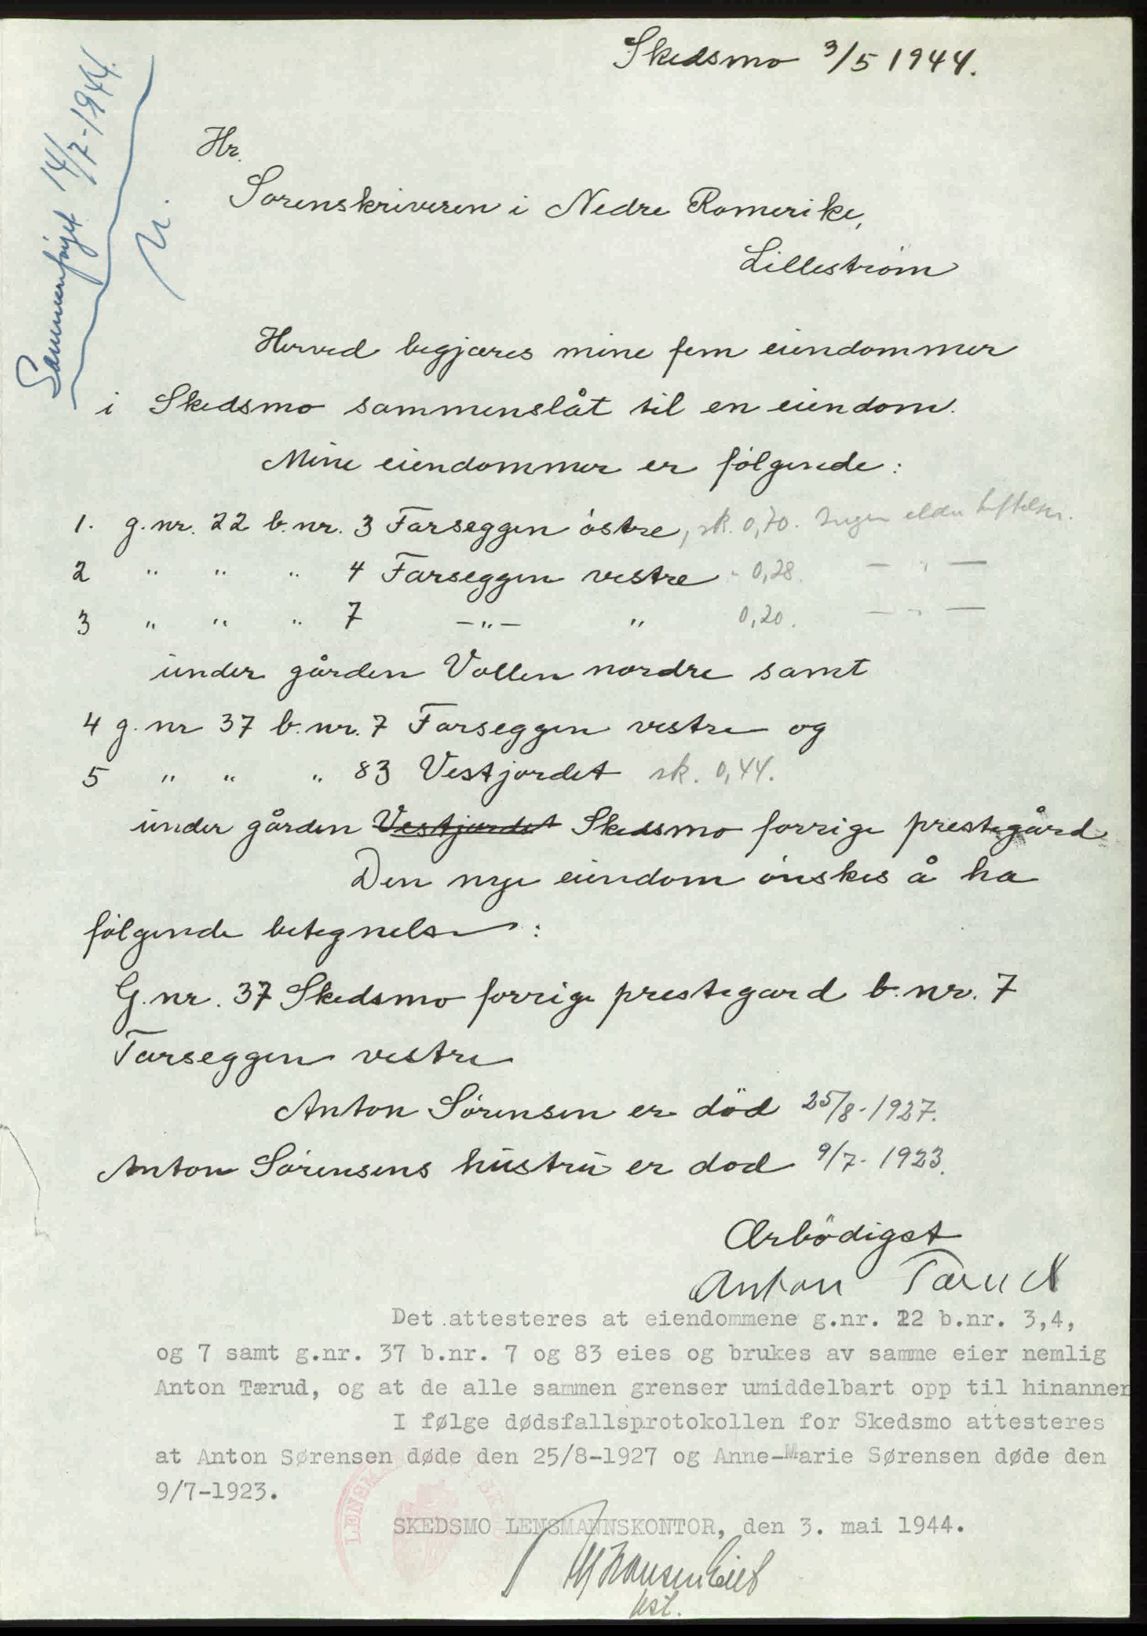 Skedsmo 3/5 1944.
Sammenføyet 14/7-1944.
Hr.
Sorenskriveren i Nedre Romerike,
Lillestrøm
Herved begjæres mine fem eiendommer
i Skedsmo sammenslåt til en eiendom.
Mine eiendommer er følgende:
1. g.nr. 22 b.nr. 3 Farseggen östre, sk. 0,70. Ingen eldre heftelser.
2 " " " 4 Farseggen vestre - 0,28. — " —
3 " " " 7 —"— " 0,20. — " —
under gården Vollen nordre samt
4 g.nr 37 b.nr. 7 Farseggen vestre og
5 " " " 83 Vestjordet sk. 0,44.
under gården Vestjordet Skedsmo forrige prestegård
Den nye eiendom ønskes å ha
følgende betegnelse:
G.nr. 37 Skedsmo forrige prestegard b.nr. 7
Farseggen vestre
Anton Sörensen er död 25/8-1927.
Anton Sörensens hustru er dod 9/7-1923.
Ærbödigst
Anton Tærud
Det attesteres at eiendommene g.nr. 22 b.nr. 3,4,
og 7 samt g.nr. 37 b.nr. 7 og 83 eies og brukes av samme eier nemlig
Anton Tærud, og at de alle sammen grenser umiddelbart opp til hinanner
I følge dødsfallsprotokollen for Skedsmo attesteres
at Anton Sørensen døde den 25/8-1927 og Anne-Marie Sørensen døde den
9/7-1923.
SKEDSMO LENSMANNSKONTOR, den 3. mai 1944.